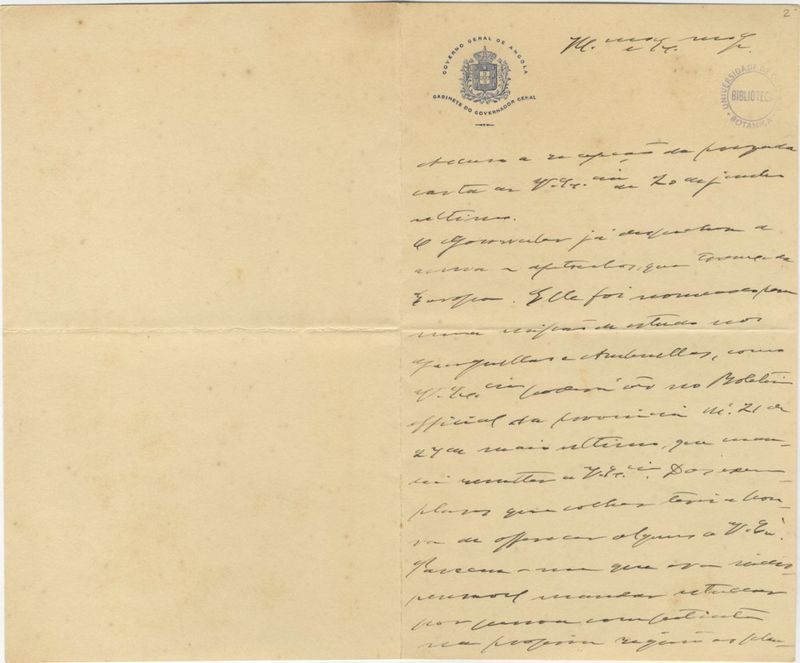 2
GOVERNO GERAL DE ANGOLA
GABINETE DO GOVERNADOR GERAL
UNIVERSIDADE DE
BIBLIOTECA
BOTANICA
Accuso a recepção da presada
carta de V. Ex.cia de 20 de
ultimo.
O Gossweiler já despachou a
que trouxe da
Europa. Elle foi nomeado para
uma missão de estudo nos
Ganguellas e Ambuellas, como
V. Ex.cia poderá vêr no Boletim
official da provincia N.º 21 de
27 de maio ultimo, que man-
dei remetter a V. Ex.cia. Dos exem-
plares que colher terei a hon-
ra de offerecer alguns a V. Ex.cia.
Pareceu-me que era indis-
pensavel mandar estudar
por pessoa competente
na propria região as plan-